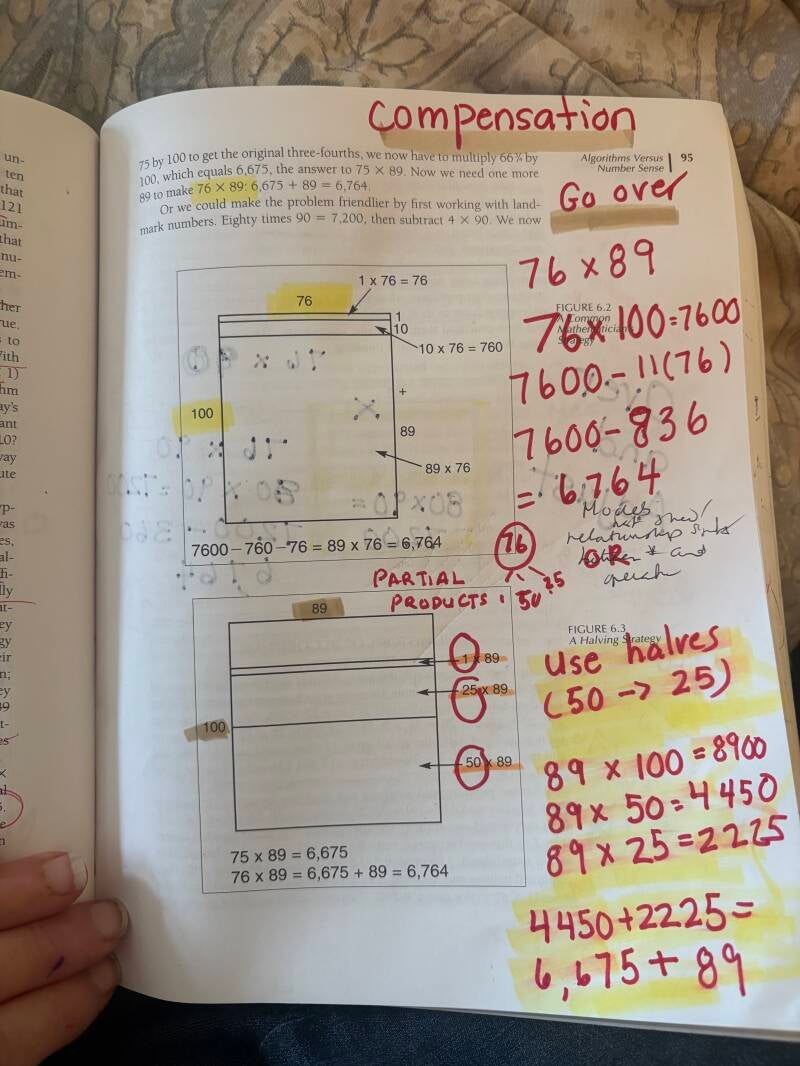 compensation
Algorithms Versus
Number Sense | 95
75 by 100 to get the original three-fourths, we now have to multiply 66¾ by
100, which equals 6,675, the answer to 75 × 89. Now we need one more
89 to make 76 × 89: 6,675 + 89 = 6,764.
Or we could make the problem friendlier by first working with land-
mark numbers. Eighty times 90 = 7,200, then subtract 4 × 90. We now
Go over
76 x 89
76 x 100=7600
7600 - 11(76)
7600 - 836
= 6764
FIGURE 6.2
A Common
Mathematician's
Strategy
1 x 76 = 76
76
1
10
10 x 76 = 760
100
+
89
89 x 76
7600 – 760 – 76 = 89 x 76 = 6,764
relationship
and
OR
76
50
25
PARTIAL
PRODUCTS
89
1 x 89
25 x 89
100
50 x 89
75 x 89 = 6,675
76 x 89 = 6,675 + 89 = 6,764
FIGURE 6.3
A Halving Strategy
use halves
(50 → 25)
89 x 100 = 8900
89 x 50 = 4450
89 x 25 = 2225
4450+2225=
6,675 + 89
un-
ten
that
121
um-
that
nu-
em-
her
rue.
to
With
1)
hm
ay's
ant
10?
way
ute
yp-
was
es,
al-
fi-
lly
at-
ey
gy
eir
n;
ey
89
t-
es